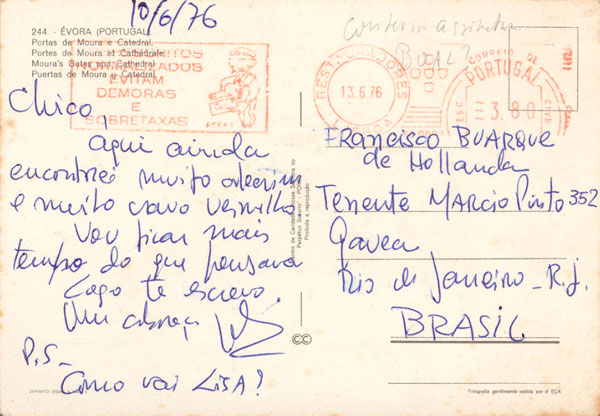 10/6/76
244 - ÉVORA (PORTUGAL)
Portas de Moura e Catedral.
Portes de Moura et Cathédrale.
Moura's Gates and Cathedral
Puertas de Moura y Catedral
NORMALIZADOS
EVITAM
DEMORAS
E
SOBRETAXAS
RESTAURADORES
13.6.76
CORREIO DE
PORTUGAL
3.80
BOAL?
Chico,
Aqui ainda
encontrei muito alecrim
e muito cravo vermelho
Vou ficar mais
tempo do que pensava
Logo te escrevo.
Um abraço
P.S-
Como vai LISA?
FRANCISCO BUARQUE
de Hollanda
Tenente MARCIO Pinto 352
Gavea
Rio de Janeiro - R.J.
BRASIL
CC
Fotografia gentilmente cedida por d' EÇA